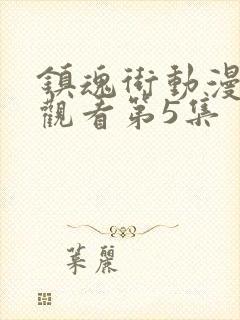 鎮魂街動漫
觀看第5集
葉麗